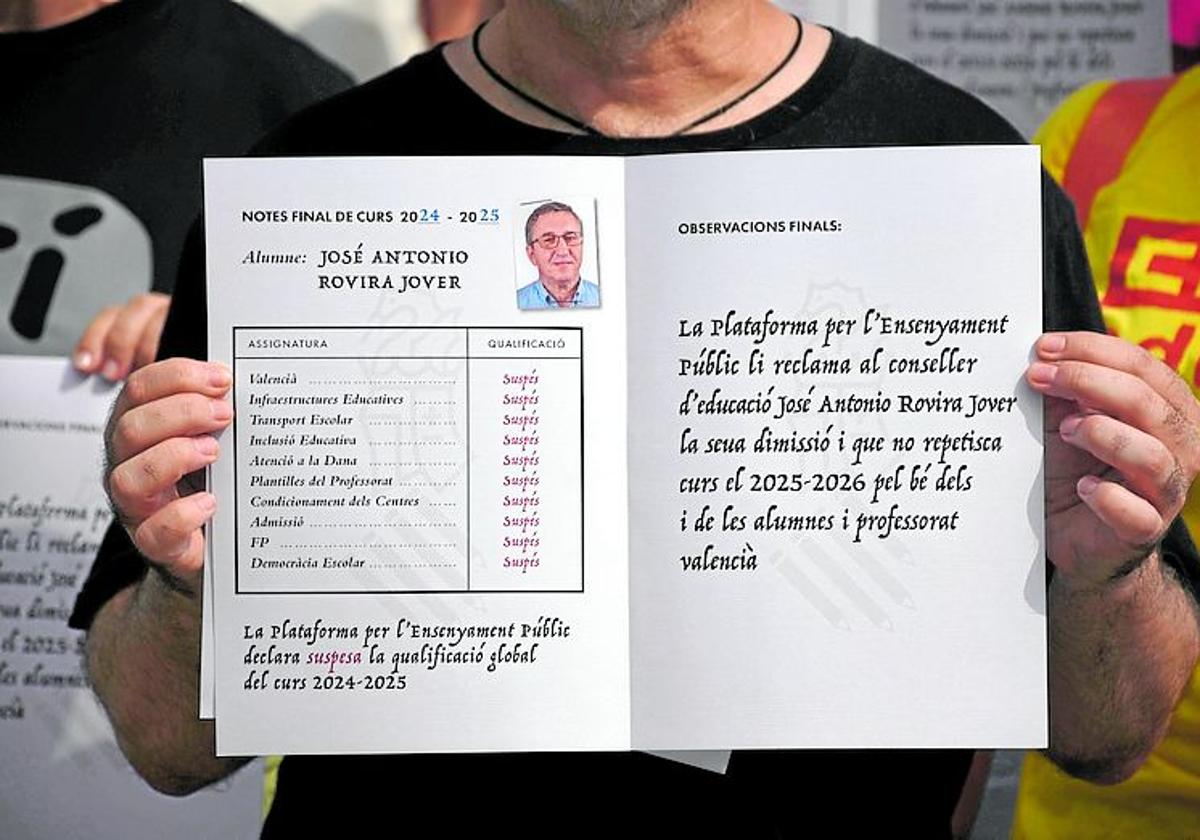 NOTES FINAL DE CURS 2024 - 2025
Alumne: JOSÉ ANTONIO
ROVIRA JOVER
ASSIGNATURA QUALIFICACIÓ
Valencià ........................ Suspés
Infraestructures Educatives ......... Suspés
Transport Escolar ..................... Suspés
Inclusió Educativa ..................... Suspés
Atenció a la Dana .................. Suspés
Plantilles del Professorat ............. Suspés
Condicionament dels Centres ...... Suspés
Admissió .............................. Suspés
FP ..................................... Suspés
Democràcia Escolar .................. Suspés
La Plataforma per l'Ensenyament Públic
declara suspesa la qualificació global
del curs 2024-2025
OBSERVACIONS FINALS:
La Plataforma per l'Ensenyament
Públic li reclama al conseller
d'educació José Antonio Rovira Jover
la seua dimissió i que no repetisca
curs el 2025-2026 pel bé dels
i de les alumnes i professorat
valencià